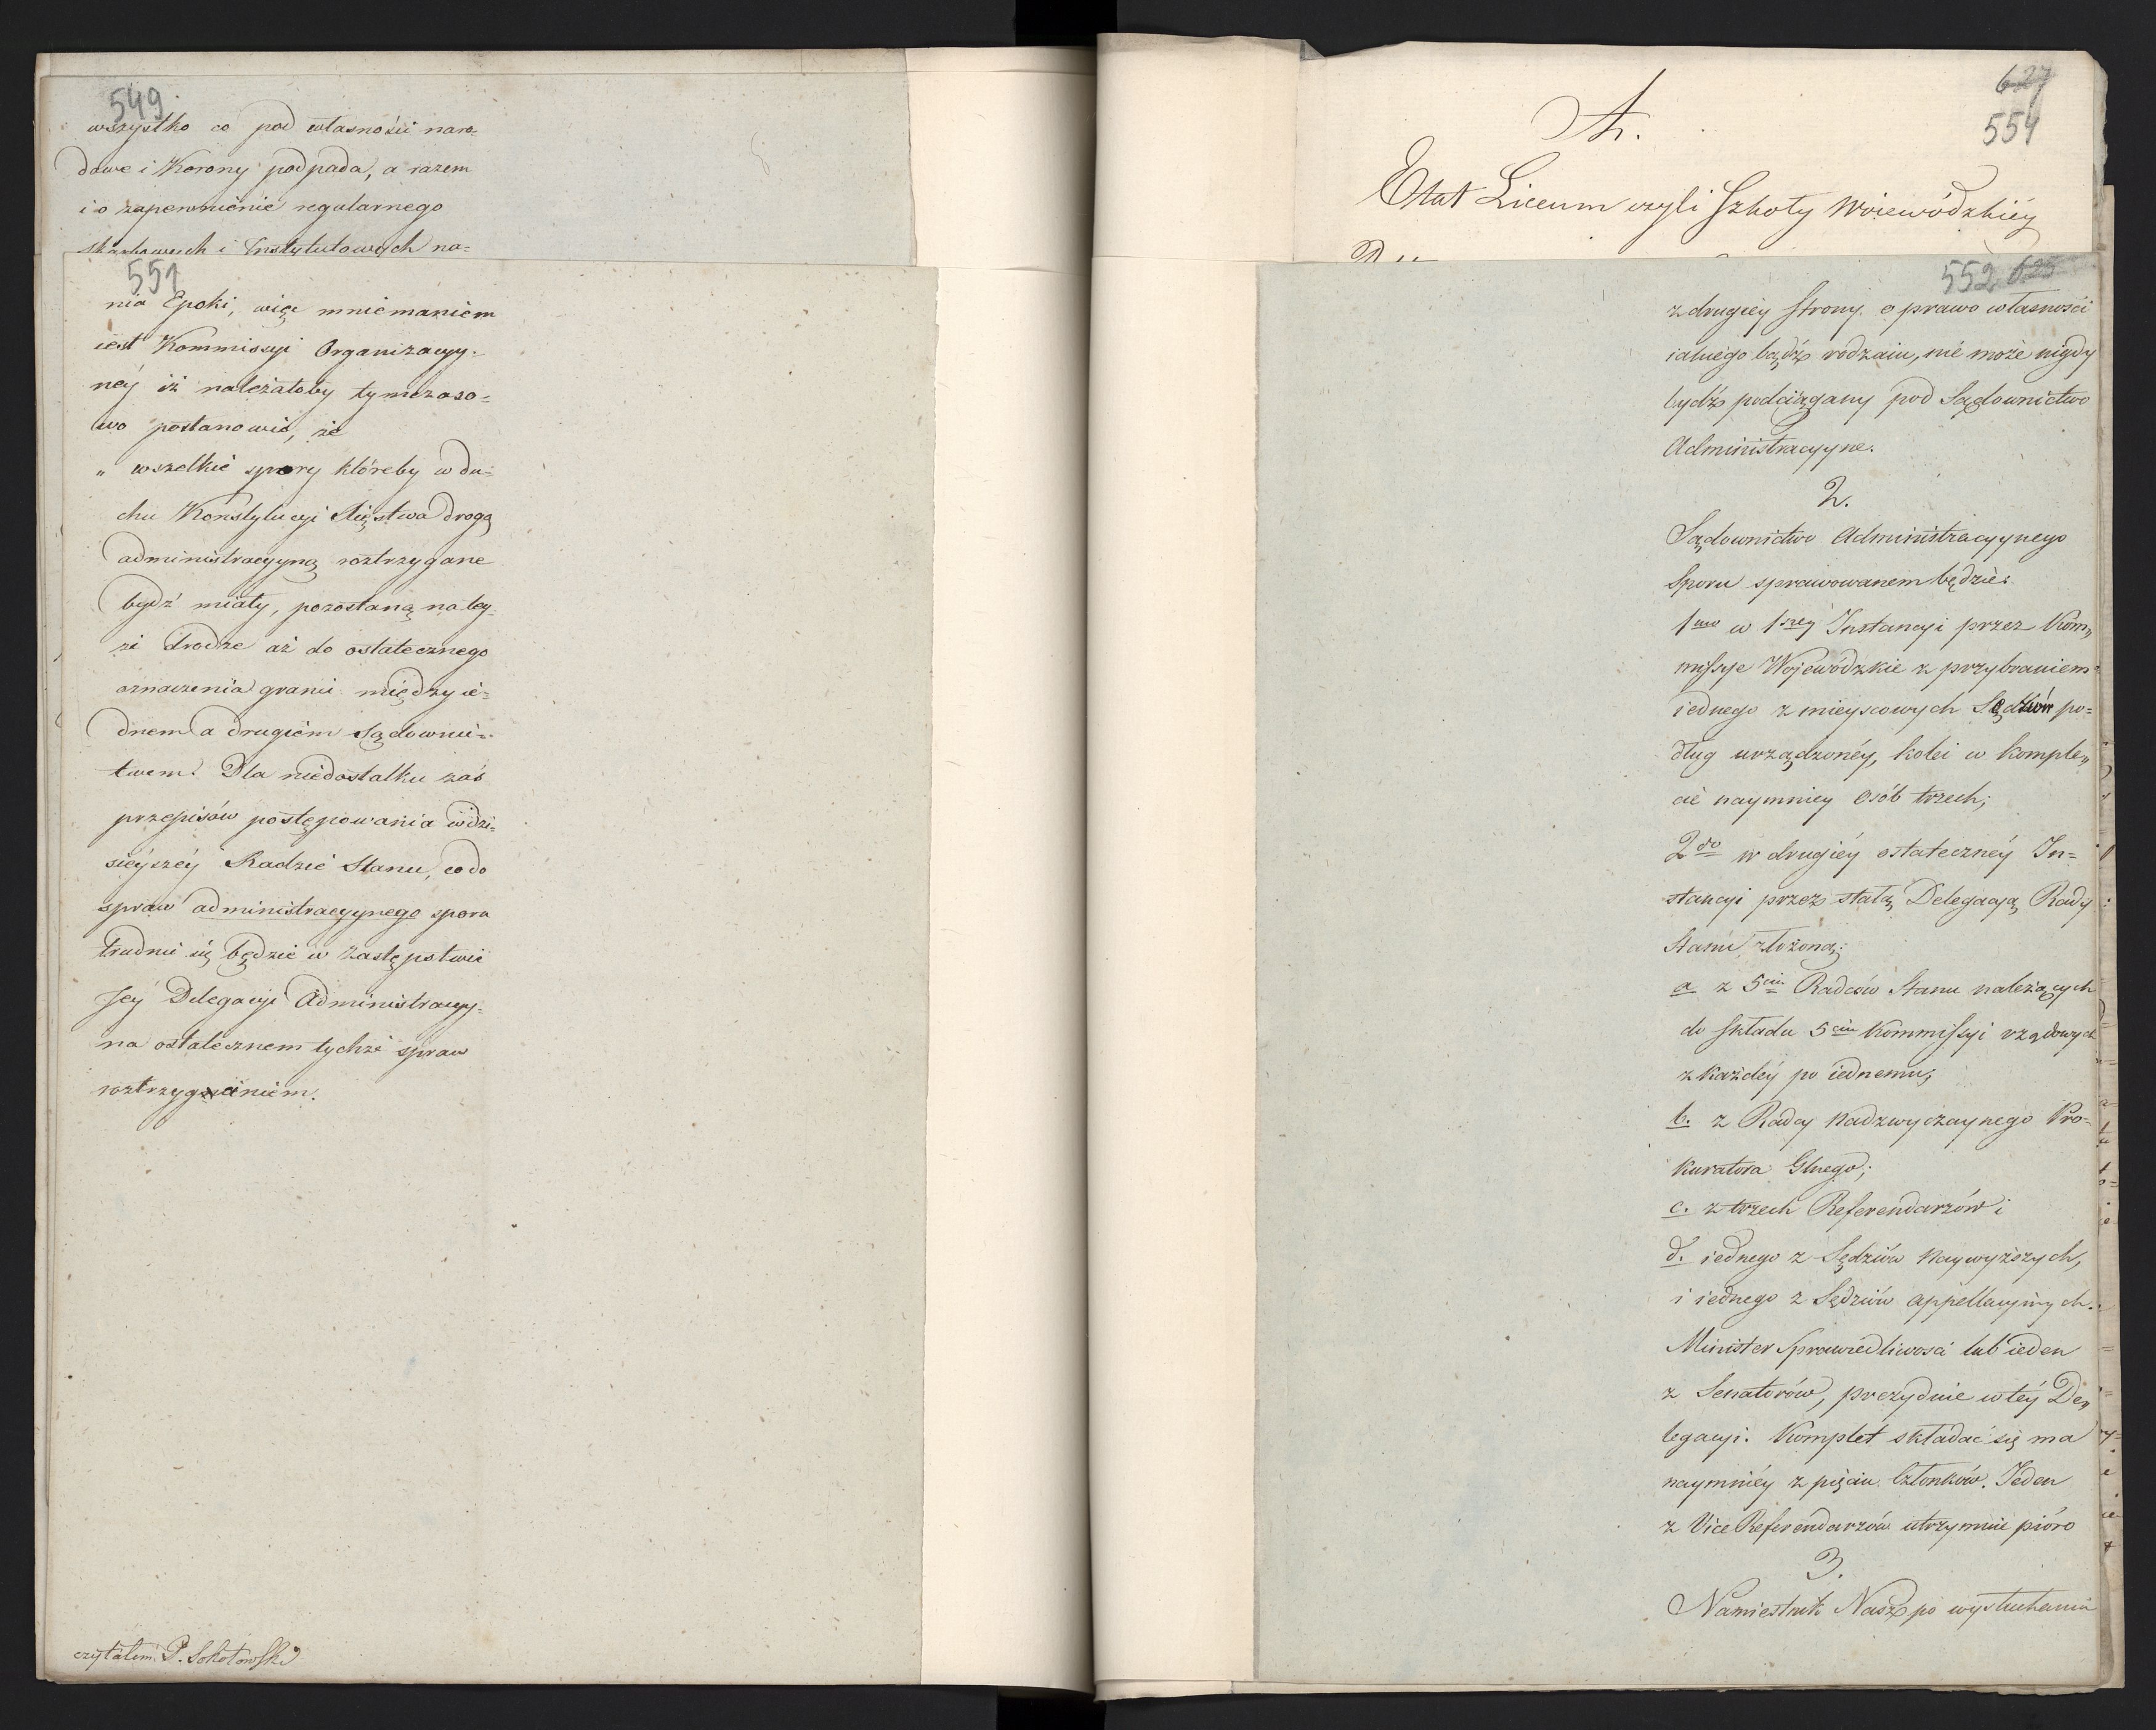 549.
wszystko co pod własności naro-
dowe i Korony podpada, a razem
i o zapewnienie regularnego
skarbowych i Instytutowych na=
551
nia Epoki, więc mniemaniem
iest Kommissyi Organizacyy-
néy iż należałoby tymczaso=
wo postanowić, że
" wszelkie spory któreby w du-
chu Konstytucyi Xięstwa drogą
administracyyną roztrzygane
bydź miały, pozostaną na tey-
że drodze aż do ostatecznego
oznaczenia granic między ie=
dnem a drugiém Sądownic-
twem. Dla niedostatku zaś
przepisów postępowania w dzi-
sieyszéy Radzie Stanu, co do
spraw administracyynego sporu
trudnić się będzie w zastępstwie
Jey Delegacyi Administracyy-
na ostatecznem tychże spraw
roztrzygnieniém.
czytałem P. Sokołowski
627
554
A.
Etat Liceum czyli Szkoły Woiewódzkiéy
552 625
z drugiéy strony o prawo własności
iakiego bądź rodzaiu, nie może nigdy
bydź podciągany pod Sądownictwo
Administracyyne.
2.
Sądownictwo Administracyynego
Sporu sprawowanem będzie:
1mo w 1széy Instancyi przez Kom„
missye Wojewódzkie z przybraniem
iednego z mieyscowych Sędziów po=
dług urządzonéy, kolei w komple„
cie naymniey osób trzech;
2do w drugiéy ostatecznéy In=
stancyi przez stałą Delegacyą Rady
Stanu, złożoną:
a z 5ciu Radców Stanu należących
do składu 5ciu Kommissyi rządowych
z każdéy po iednemu;
b. z Rady Nadzwyczaynego Pro=
kuratora Glnego;
c. z trzech Referendarzów i
d. iednego z Sędziów Naywyższych,
i iednego z Sędziów appellacyinych.
Minister Sprawiedliwości lub ieden
z Senatorów, prezyduie w téy De„
legacyi. Komplet składać się ma
naymniéy z pięciu Członków. Jeden
z Vice Referendarzów utrzymuie pióro
3.
Namiestnik Nasz po wysłuchaniu